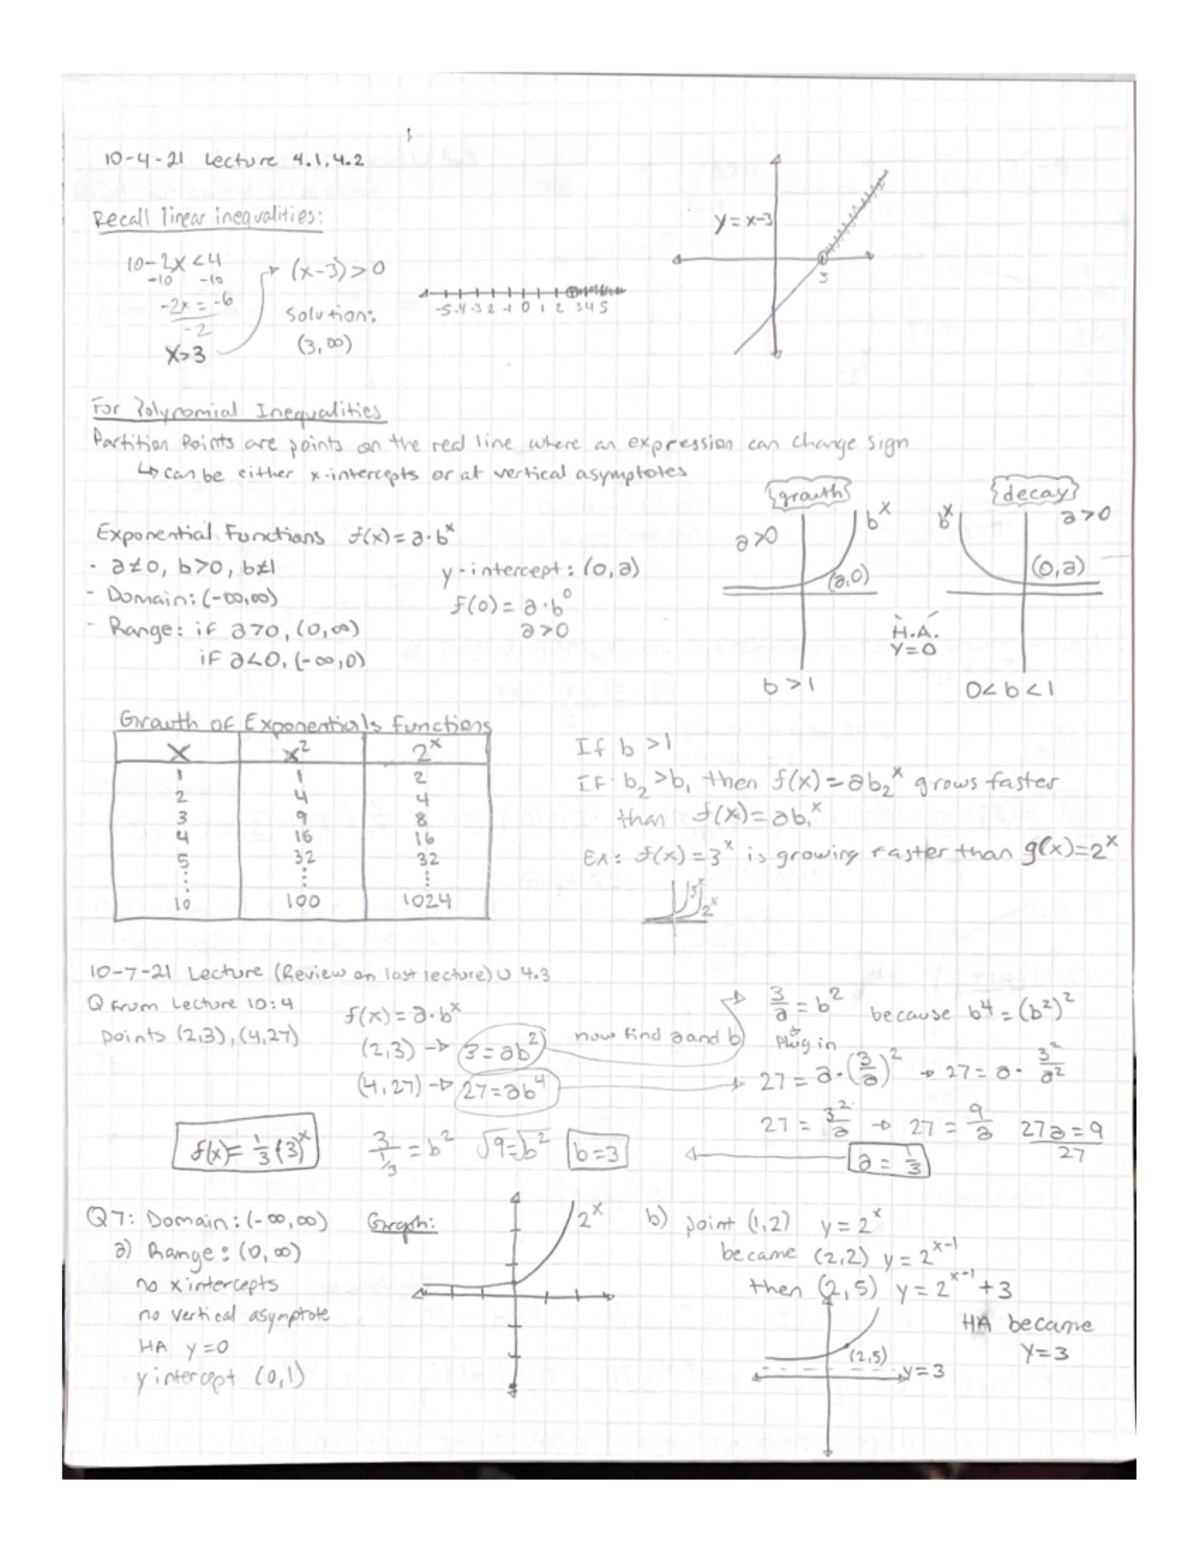 10-4-21 Lecture 4.1, 4.2
Recall linear inequalities:
10-2x<4
-10 -10
-2x = -6
-2
x>3
(x-3)>0
Solution:
(3,∞)
-5 -4 -3 2 -1 0 1 2 3 4 5
y=x-3
3
For Polynomial Inequalities
Partition Points are points on the real line where an expression can change sign
↳ can be either x-intercepts or at vertical asymptotes
Exponential Functions f(x)=a·b^x
· a≠0, b>0, b≠1
- Domain: (-∞,∞)
- Range: if a>0, (0,∞)
if a<0, (-∞,0)
y-intercept: (0,a)
f(0)=a·b^0
a>0
growth
a>0
b^x
(a,0)
b>1
H.A.
y=0
decay
b^x
a>0
(0,a)
0<b<1
Growth of Exponentials functions
x x^2 2^x
1 1 2
2 4 4
3 9 8
4 16 16
5 32 32
10 100 1024
If b>1
If b₂>b₁ then f(x)=ab₂^x grows faster
than f(x)=ab₁^x
Ex: f(x)=3^x is growing faster than g(x)=2^x
3^x
2^x
10-7-21 Lecture (Review on last lecture) ∪ 4.3
Q from Lecture 10:4
points (2,3), (4,27)
f(x)=a·b^x
(2,3) → 3=ab^2
(4,27) → 27=ab^4
now find a and b
3/a = b^2 because b^4=(b^2)^2
plug in
27=a·(3/a)^2 → 27=a·3^2/a^2
27=3^2/a → 27=9/a 27a=9
27
a=1/3
3/(1/3)=b^2 √9=√b^2 b=3
f(x)=1/3(3)^x
Q7: Domain: (-∞,∞)
a) Range: (0,∞)
no x intercepts
no vertical asymptote
HA y=0
y intercept (0,1)
Graph:
2^x
b) point (1,2) y=2^x
became (2,2) y=2^x-1
then (2,5) y=2^x-1+3
HA became
y=3
(2,5)
y=3